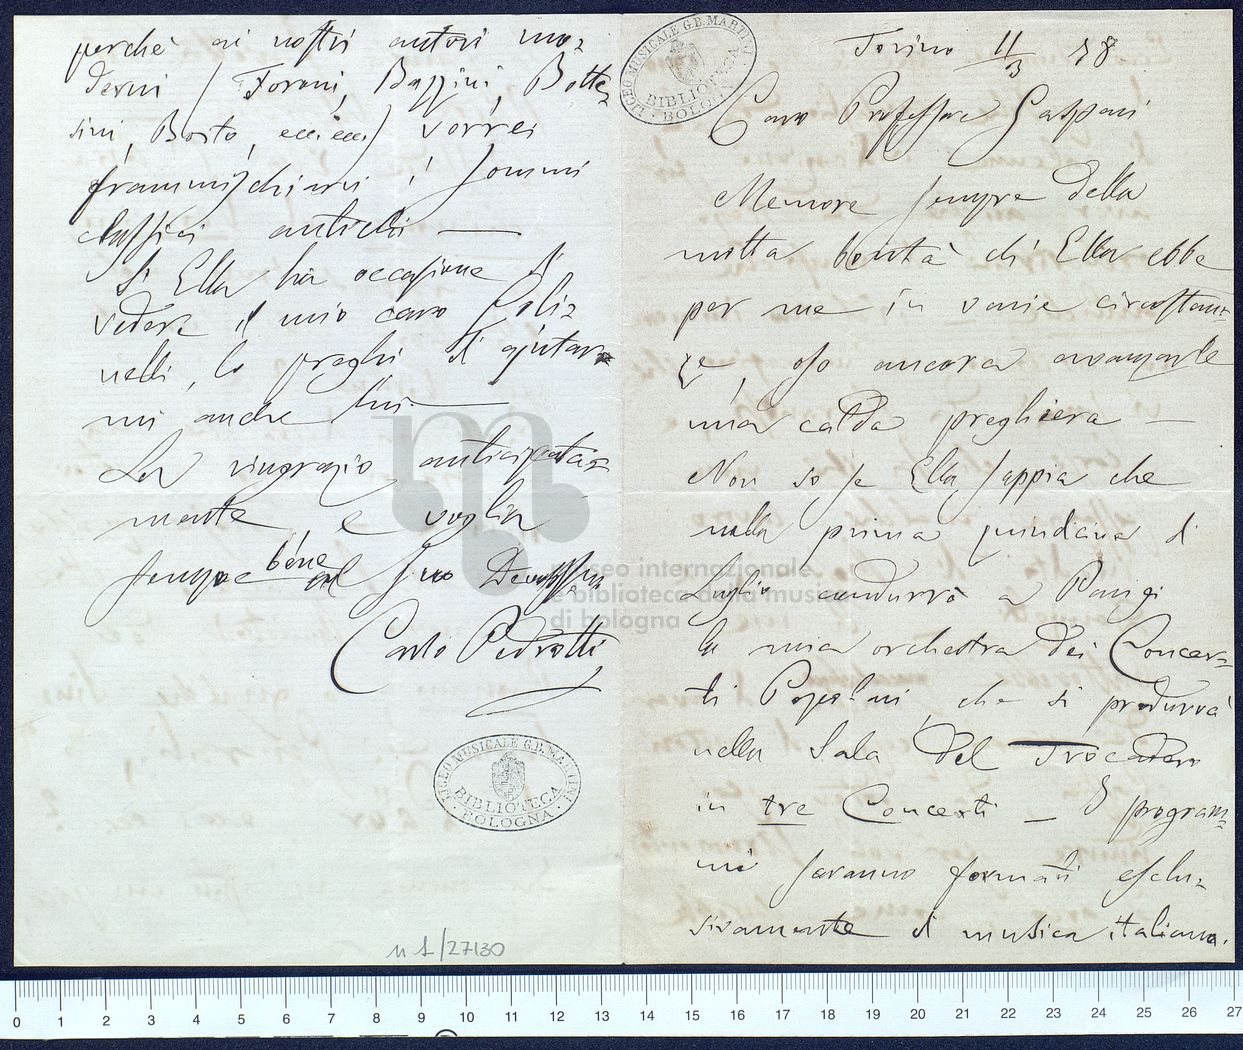 Torino 11/3 78
Caro Professore Gaspari
Memore sempre della
molta bontà che Ella ebbe
per me in varie circostan=
ze, oso ancora avanzarle
una calda preghiera —
Non so se Ella sappia che
nella prima quindicina di
Luglio condurrò a Parigi
la mia orchestra dei Concer=
ti Popolari, che si produrrà
nella Sala del Trocadero
in tre Concerti — I program=
mi saranno formati esclu=
sivamente di musica italiana.
perchè ai nostri autori mo=
derni (Foroni, Bazzini, Botte=
sini, Boito, ecc: ecc:) vorrei
frammischiarvi i sommi
classici antichi —
Se Ella ha occasione di
vedere il mio caro Goli=
nelli, lo preghi di ajutar=
mi anche lui —
La ringrazio anticipata=
mente, e voglia
sempre bene al suo Devotissimo
Carlo Pedrotti
LICEO MUSICALE G.B. MARTINI
BIBLIOTECA
BOLOGNA
LICEO MUSICALE G.B. MARTINI
BIBLIOTECA
BOLOGNA
museo internazionale
e biblioteca della musica
di bologna
n 1/27130
0 1 2 3 4 5 6 7 8 9 10 11 12 13 14 15 16 17 18 19 20 21 22 23 24 25 26 27